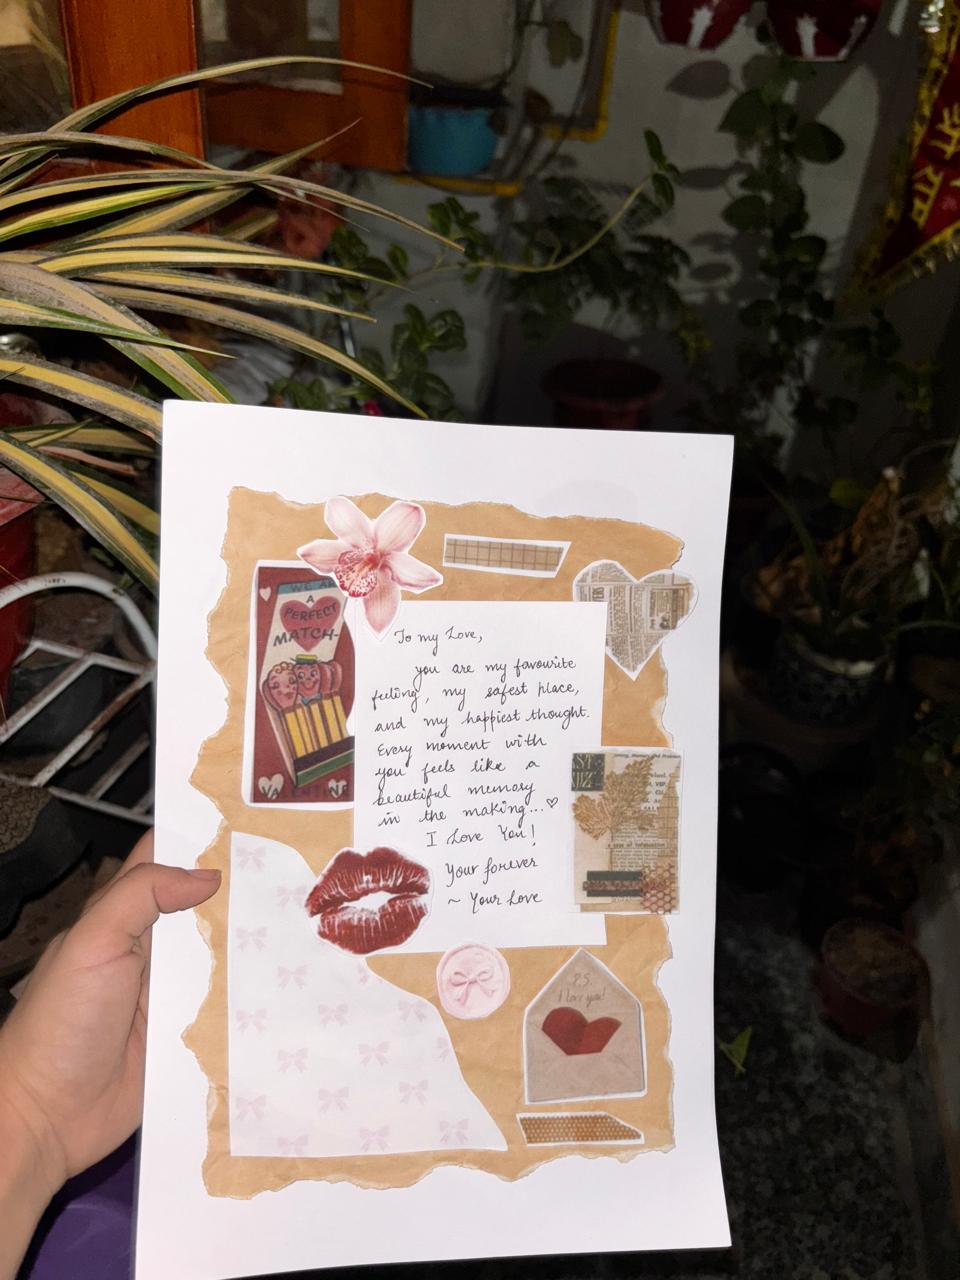 WE AR
A
PERFECT
MATCH-
To my Love,
you are my favourite
feeling, my safest place,
and my happiest thought.
Every moment with
you feels like a
beautiful memory
in the making...♡
I Love You!
Your forever
~ Your Love
P.S.
I love you!